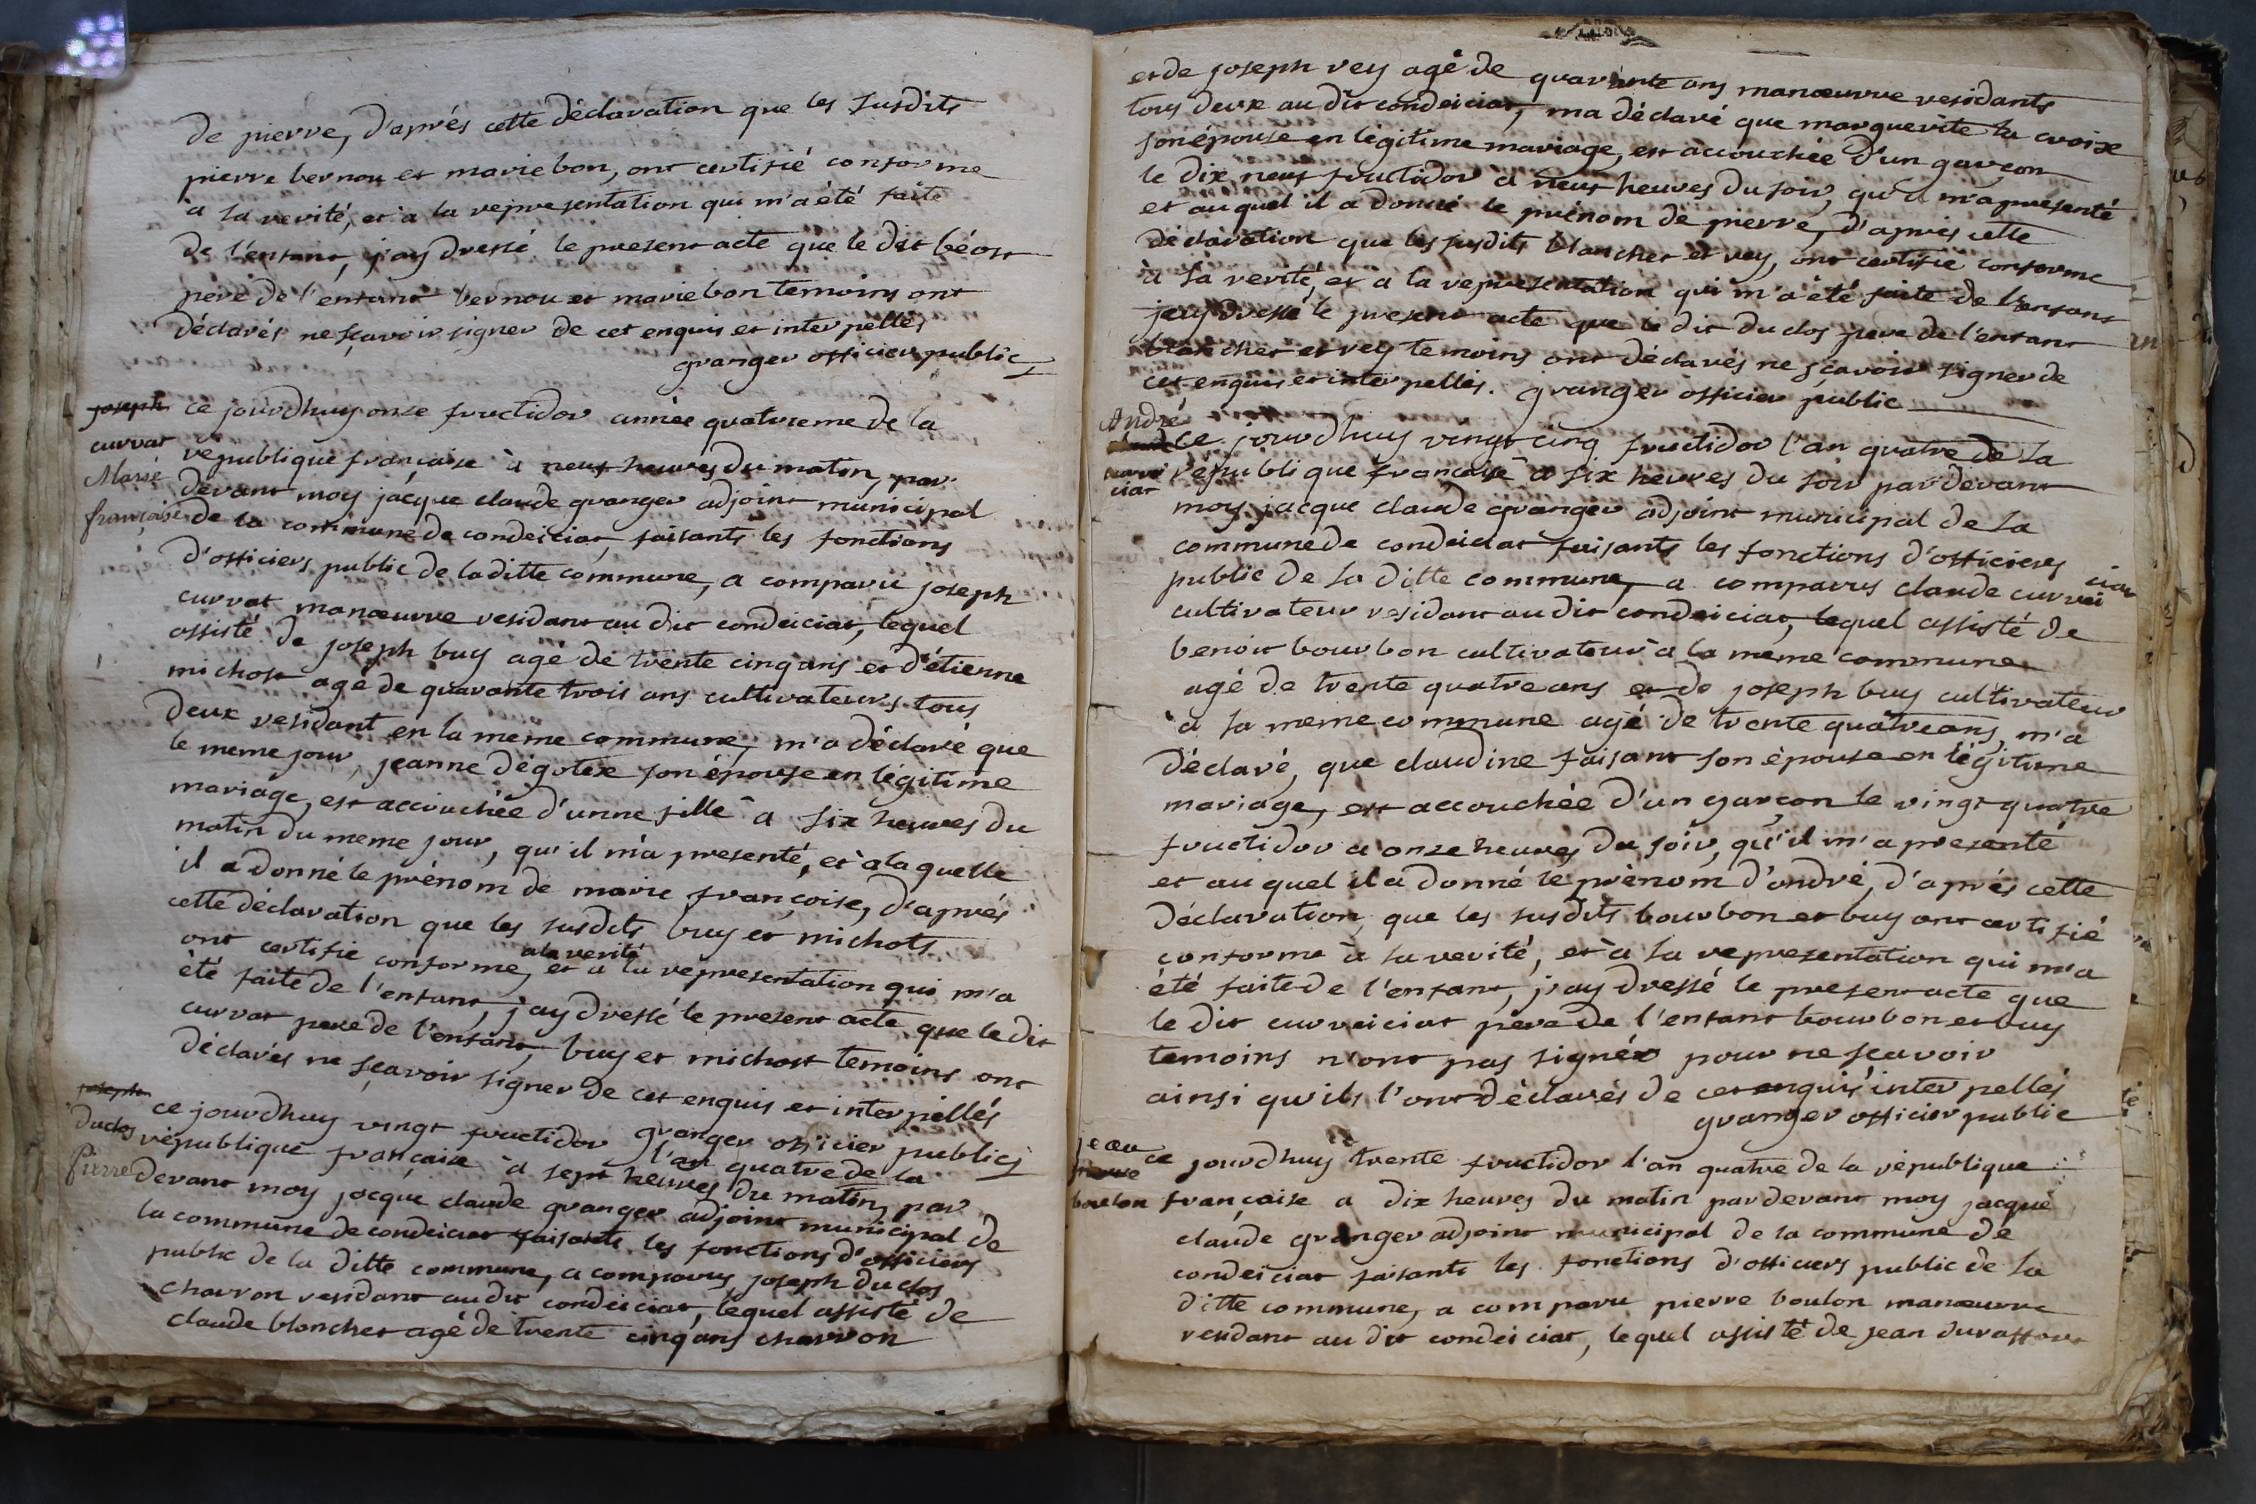 de pierre, d'aprés cette déclaration que les susdits
pierre bernou et marie bon, ont certifié conforme
à la verité, et à la representation qui m'a été faite
de l'enfant, j'ay dressé le present acte que le dit béost
pere de l'enfant bernou et marie bon temoins ont
déclarés ne sçavoir signer de cet enquis et interpellés
granger officier public
joseph
curvat
Marie
françoise
ce jourdhuy onze fructidor année quatrieme de la
republique française à neuf heures du matin, par
devant moy jacque claude granger adjoint municipal
de la commune de condeiciat, faisants les fonctions
d'officiers public de laditte commune, a comparu joseph
curvat manœuvre residant au dit condeiciat, lequel
assisté de joseph buy agé de trente cinq ans et d'étienne
michost agé de quarante trois ans cultivateurs tous
deux residant en la meme commune, m'a déclaré que
le meme jour, jeanne dégotex son épouse en légitime
mariage, est accouchée d'unne fille à six heures du
matin du meme jour, qu'il m'a presenté, et à laquelle
il a donné le prénom de marie françoise, d'aprés
cette déclaration que les susdits buy et michots
ont certifie conforme, et a la representation qui m'a
a la verité
été faite de l'enfant, j'ay dressé le present acte que le dit
curvat pere de l'enfant, buy et michost temoins ont
déclarés ne sçavoir signer de cet enquis et interpellés
granger officier public
joseph
duclos
Pierre
ce jourdhuy vingt fructidor l'an quatre de la
république française à sept heures du matin, par
devant moy jacque claude granger adjoint municipal de
la commune de condeiciat faisants les fonctions d'officiers
public de la ditte commune, a comparus joseph duclos
charron residant au dit condeiciat, lequel assisté de
claude blanchet agé de trente cinq ans charron
et de joseph vey agé de quarante ans manœuvre residants
tous deux au dit condeiciat, ma déclaré que marguerite la croix
son épouse en legitime mariage, est accouchée d'un garçon
le dix neuf fructidor à neuf heures du soir, qu'il m'a présenté
et auquel il a donné le prénom de pierre, d'aprés cette
déclaration que les susdits blanchet et vey, ont certifié conforme
à la verité, et a la representation qui m'a été faite de l'enfant
j'ay dressé le present acte que le dit duclos pere de l'enfant
blanchet et vey temoins ont déclarés ne sçavoir signer de
cet enquis et interpellés. granger officier public
André
curvei
ciat
ce jourdhuy vingt cinq fructidor l'an quatre de la
republique française à six heures du soir pardevant
moy jacque claude granger adjoint municipal de la
commune de condeiciat faisants les fonctions d'officiers
public de la ditte commune, a comparus claude curvei
ciat
cultivateur residant au dit condeiciat, lequel assisté de
benoit bourbon cultivateur à la meme commune
agé de trente quatre ans et de joseph buy cultivateur
à la meme commune agé de trente quatre ans, m'a
déclaré, que claudine faisant son épouse en légitime
mariage, est accouchée d'un garçon le vingt quatre
fructidor à onze heures du soir, qu'il m'a presenté
et auquel il a donné le prénom d'andré, d'aprés cette
déclaration, que les susdits bourbon et buy ont certifié
conforme à la verité, et à la representation qui m'a
été faite de l'enfant, j'ay dressé le present acte que
le dit curveiciat père de l'enfant bourbon et buy
temoins n'ont pas signés pour ne sçavoir
ainsi qu'ils l'ont déclarés de cet enquis interpellés
granger officier public
jean
pierre
boulon
ce jourdhuy trente fructidor l'an quatre de la république
française a dix heures du matin pardevant moy jacque
claude granger adjoint municipal de la commune de
condeiciat faisants les fonctions d'officiers public de la
ditte commune, a comparu pierre boulon manœuvre
residant au dit condeiciat, lequel assisté de jean